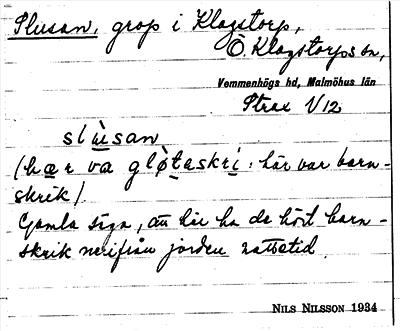 Slusan, grop i Klagstorp,
Ö. Klagstorps sn,
Vemmenhögs hd, Malmöhus län
Strax V12
slùsan
(hær va gløtaskrí: här var barn-
skrik).
Gamla säga, att här ha de hört barn-
skrik nerifrån jorden nattetid.
NILS NILSSON 1934